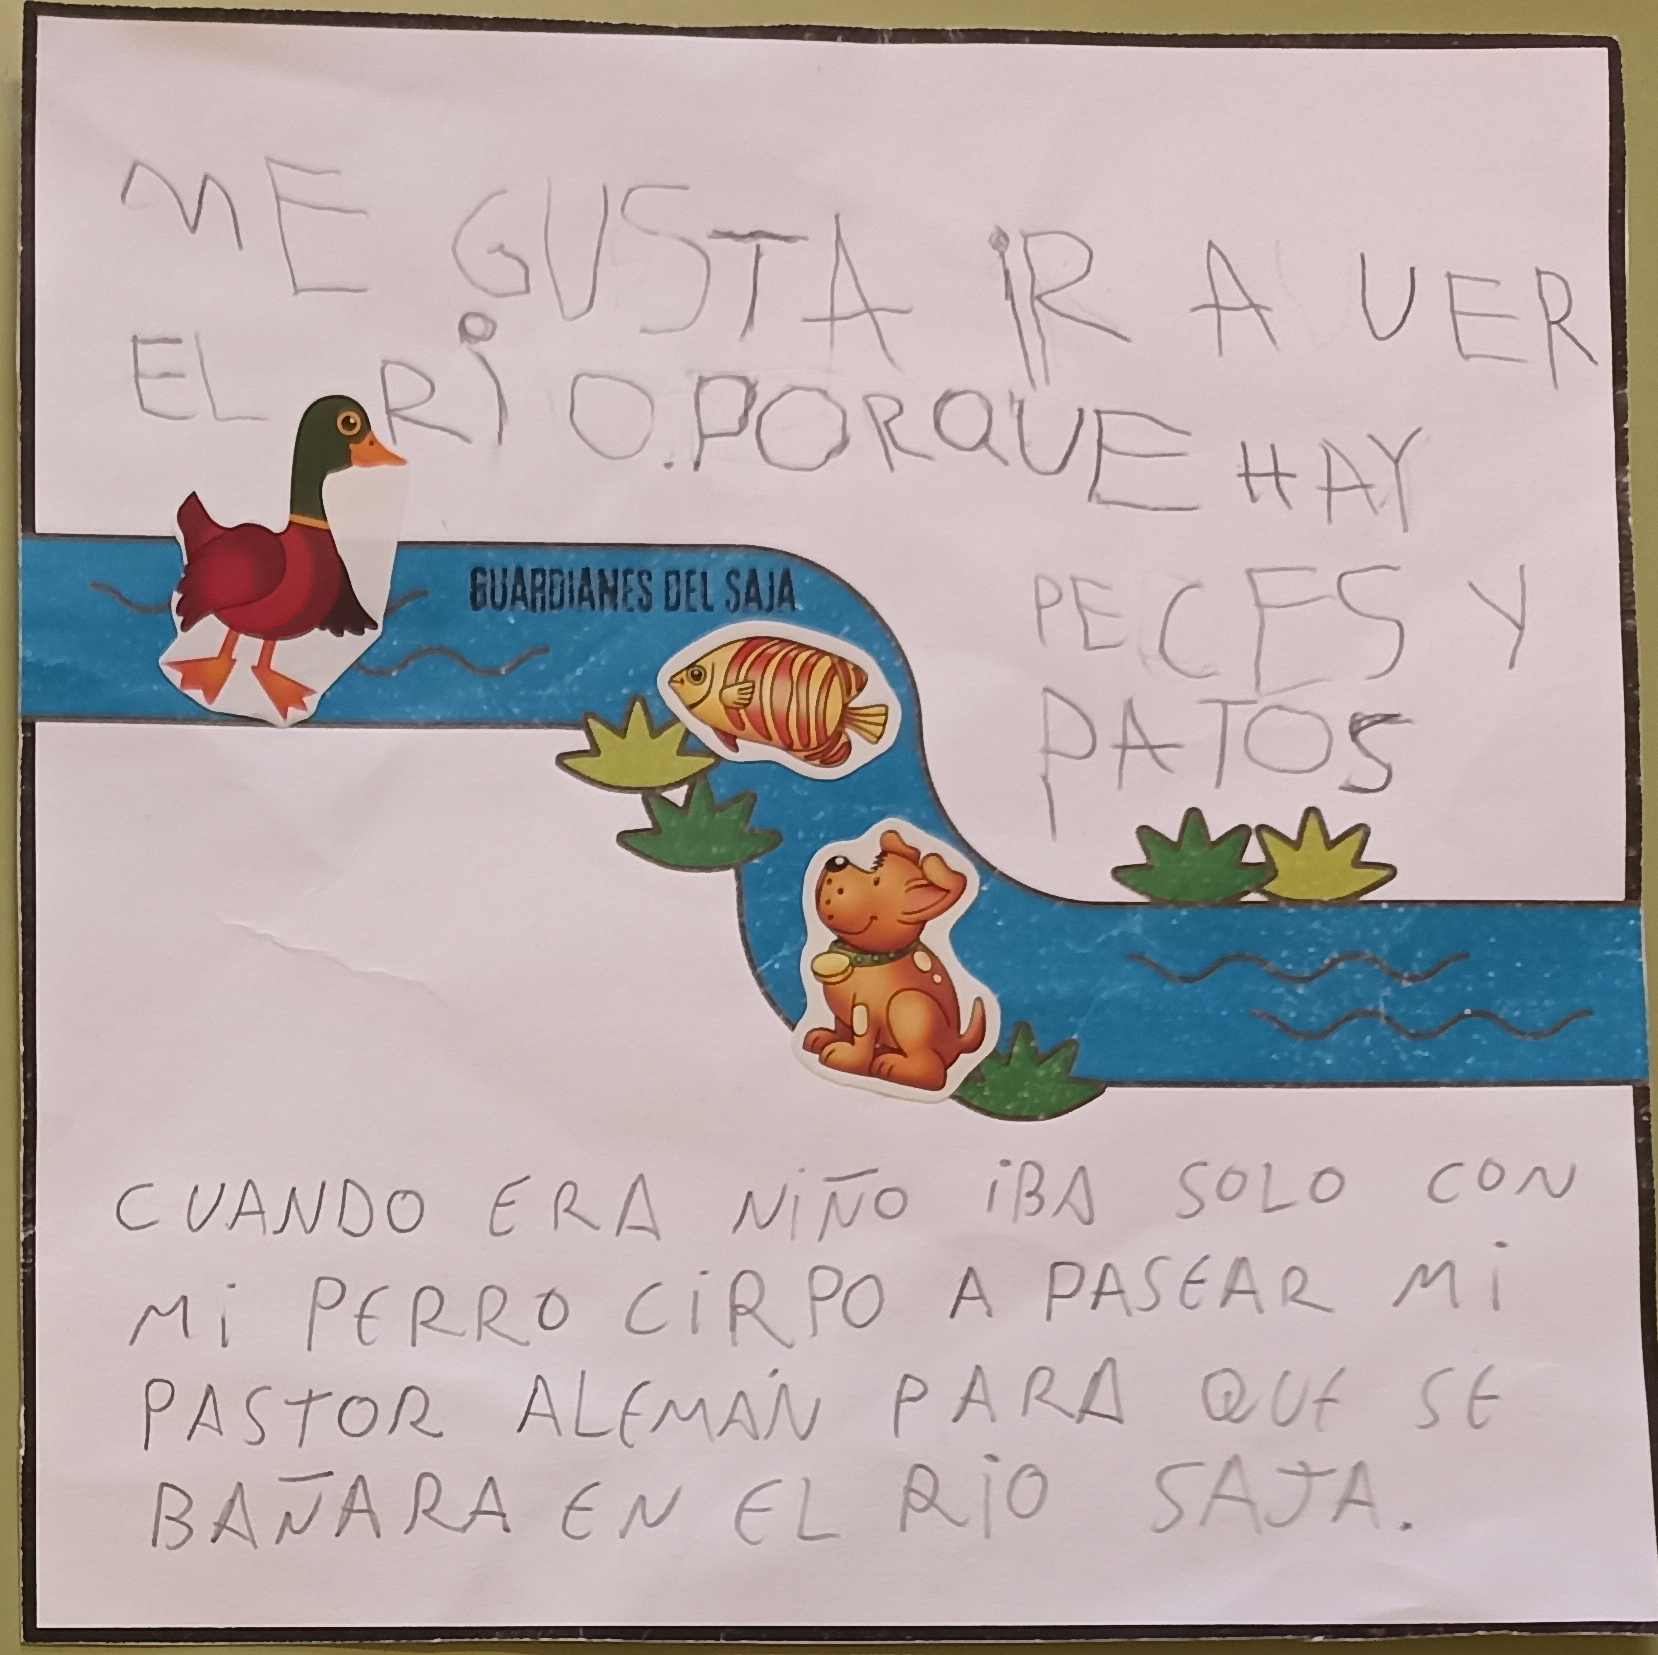 ME GUSTA IR A VER
EL RIO. PORQUE HAY
PECES Y
PATOS
GUARDIANES DEL SAJA
CUANDO ERA NIÑO IBA SOLO CON
MI PERRO CIRPO A PASEAR MI
PASTOR ALEMÁN PARA QUE SE
BAÑARA EN EL RIO SAJA.